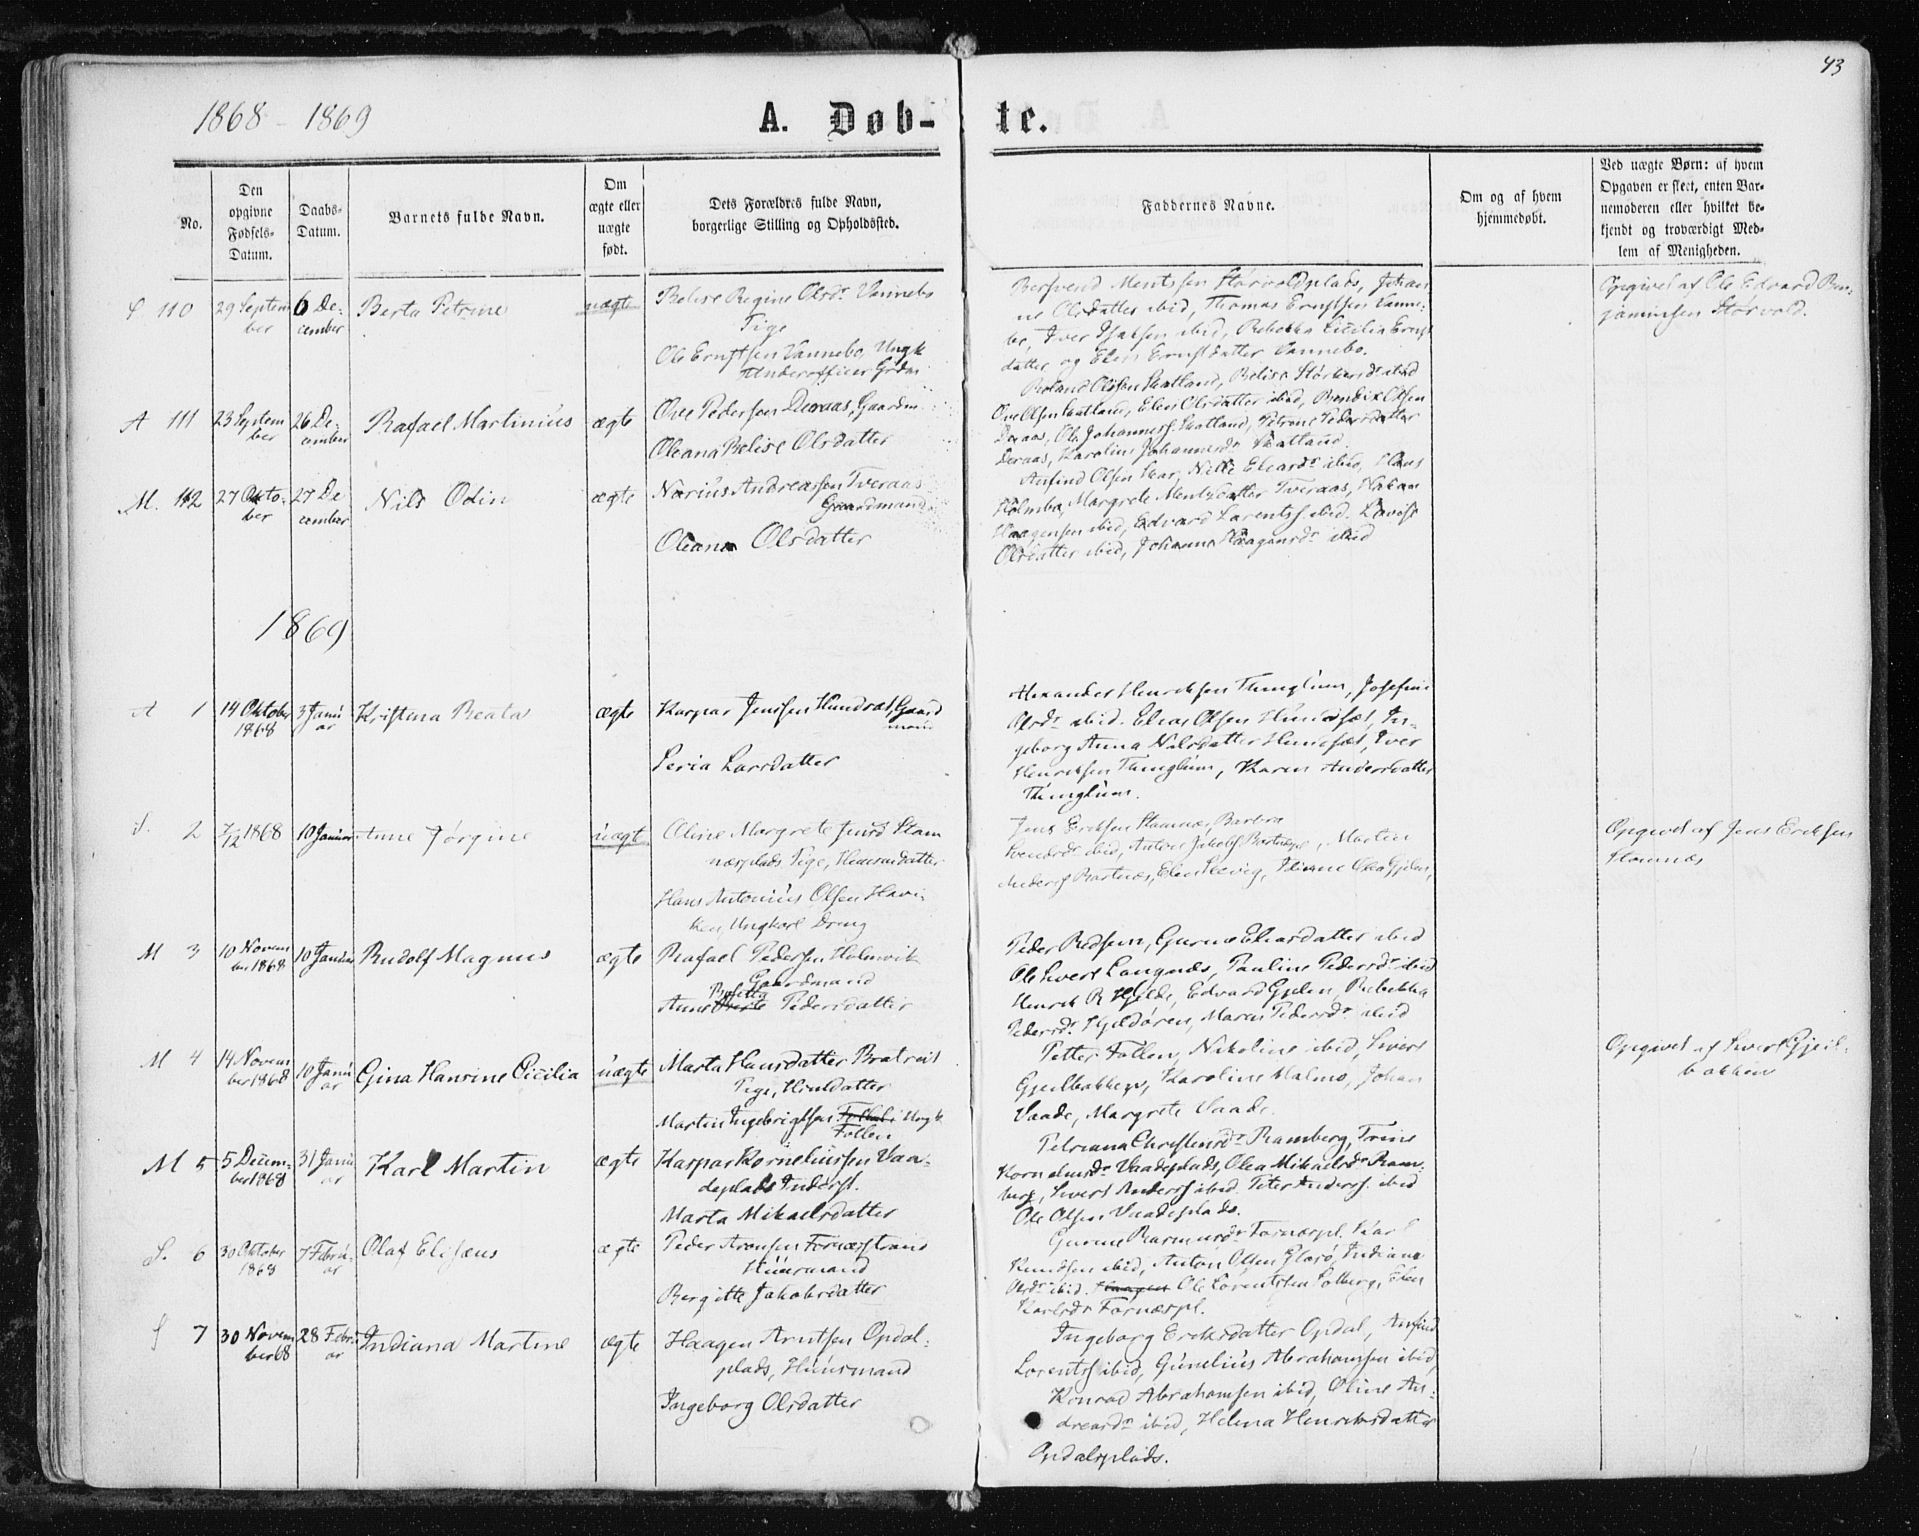 43
1868 - 1869
A. Døb-te.
No.
Den opgivne Fødsels-Datum.
Daabs-Datum.
Barnets fulde Navn.
Om ægte eller uægte født.
Dets Forældres fulde Navn, borgerlige Stilling og Opholdssted.
Faddernes Navne.
Om og af hvem hjemmedøbt.
Ved uægte Børn: af hvem Opgaven er skeet, enten Barnemoderen eller hvilket bekjendt og troværdigt Medlem af Menigheden.
S 110
29 Septem
ber
6 De-
cember
Berta Petrine
uægte
Belise Regine Olsdr Vannebo
Pige
Ole Ernstsen Vannebo, Ungk
Underofficer
Bersvend Mentssen Størvoldplads, Johan
ne Olsdatter ibid, Thomas Ernstsen Vanne-
bo, Iver Isaksen ibid, Rebekka Cicilia Ernst
datter og Elen Ernstdatter Vannebo.
Opgivet af Ole Edvard Ben-
jaminsen Størvold.
A 111
23 Septem
ber
26 De-
cember
Rafael Martinius
ægte
Ove Pedersen Deraas, Gaardm
Oleana Belise Olsdatter
Roland Olsen Skatland, Belise ibid
Ove Olsen Skatland, Elen Olsdatter ibid, Bendix Olsen
Deraas, Ole Johanness Skatland, Petrine Pedersdatter
Deraas, Karoline Johannesdr Skatland.
M. 112
27 Okto-
ber
27 De
cember
Nils Odin
ægte
Nærius Andreassen Tveraas
Gaardmand
Oleana Olsdatter
Anfind Olsen Skar, Eleasdr ibid, Hans
Holmbo, Margrete Mentsdatter Tveraas, Hakan
Haagensen ibid, Edvard Lorentss. ibid. Lovise
Olsdatter ibid, Johanna Haagensdr ibid
1869
A 1
14 Oktober
1868
3 Janu
ar
Kristina Beata
ægte
Kaspar Jenssen Hundsæt, Gaard
mand
Seria Larsdatter
Alexander Henriksen Thinglum, Josefine
Olsdr ibid. Elias Olsen Hundsæt, In-
geborg Anna Nilsdatter Hundsæt, Iver
Henriksen Thinglum, Karen Andersdatter
Thinglum.
S. 2
7/12 1868
10 Januar
Anne Jørgine
uægte
Oline Margrete Jensd Stam
næsplads Pige, Huusmdatter
Hans Antonius Olsen Havi-
ken, Ungkarl Dreng
Jens Eriksen Stamnæs, Barbra
Svendsdr ibid, Anton Jakobs , Martin
Anderss Bartnæs, Elen , Olea Gjelen,
Opgivet af Jens Eriksen
Stamnæs
M 3
10 Novem
ber 1868
10 Januar
Rudolf Magnus
ægte
Rafael Pedersen Holmvik
Gaardmand
Anne Pedersdatter
Peder , Gurine Eleasdatter ibid
Ole Sivert Langnæs, Pauline Pedersdr ibid
Henrik R Hjelde, Edvard Gjelen, Rebekka
Pedersdr , Maren Pedersdr ibid
M 4
14 Novem
ber 1868
10 Janu
ar
Gina Hansine Cicilia
uægte
Marta Hansdatter Bratreit
Pige, Hmdatter
Martin Ingebrigtsen Ungk
Follen
Petter Follen, Nikoline ibid, Sivert
Gjeilbakken, Karoline Malmo, Johan
Vaade, Margrete Vaade.
Opgivet af Sivert Gjeil-
bakken
M 5
5 Decem-
ber 1868
31 Janu
ar
Karl Martin
ægte
Kaspar Korneliussen Vaa-
deplads Inderst.
Marta Mikaelsdatter
Petriana Christensdr Ramberg, Trine
Kornelusdr Vaadeplads, Olea Mikaelsdr Ram-
berg, Sivert Anderss ibid. Peter Anderss. ibid
Ole Olsen Vaadeplads.
S. 6
30 Oktober
1868
7 Febru-
ar
Olaf Elisæus
ægte
Peder Aronsen Fornæstrand
Huusmand
Bergitte Jakobsdatter
Gurine Rasmusdr Fornæspl. Karl
Knudsen ibid, Anton Olsen Elsø, Indiana
Olsdr ibid. Ole Lorentssen Solberg, Elen
Karlsdr Fornæspl.
S 7
30 Novem
ber 68
28 Febru
ar
Indiana Martine
ægte
Haagen Arntsen Opdal-
plads, Huusmand
Ingeborg Olsdatter
Ingeborg Eriksdatter Opdal, Anfind
Lorents ibid, Gunelius Abrahamsen ibid,
Konrad Abrahamsen ibid, Oline An-
dreasdr ibid, Helena Henriksdatter
Opdalsplads.